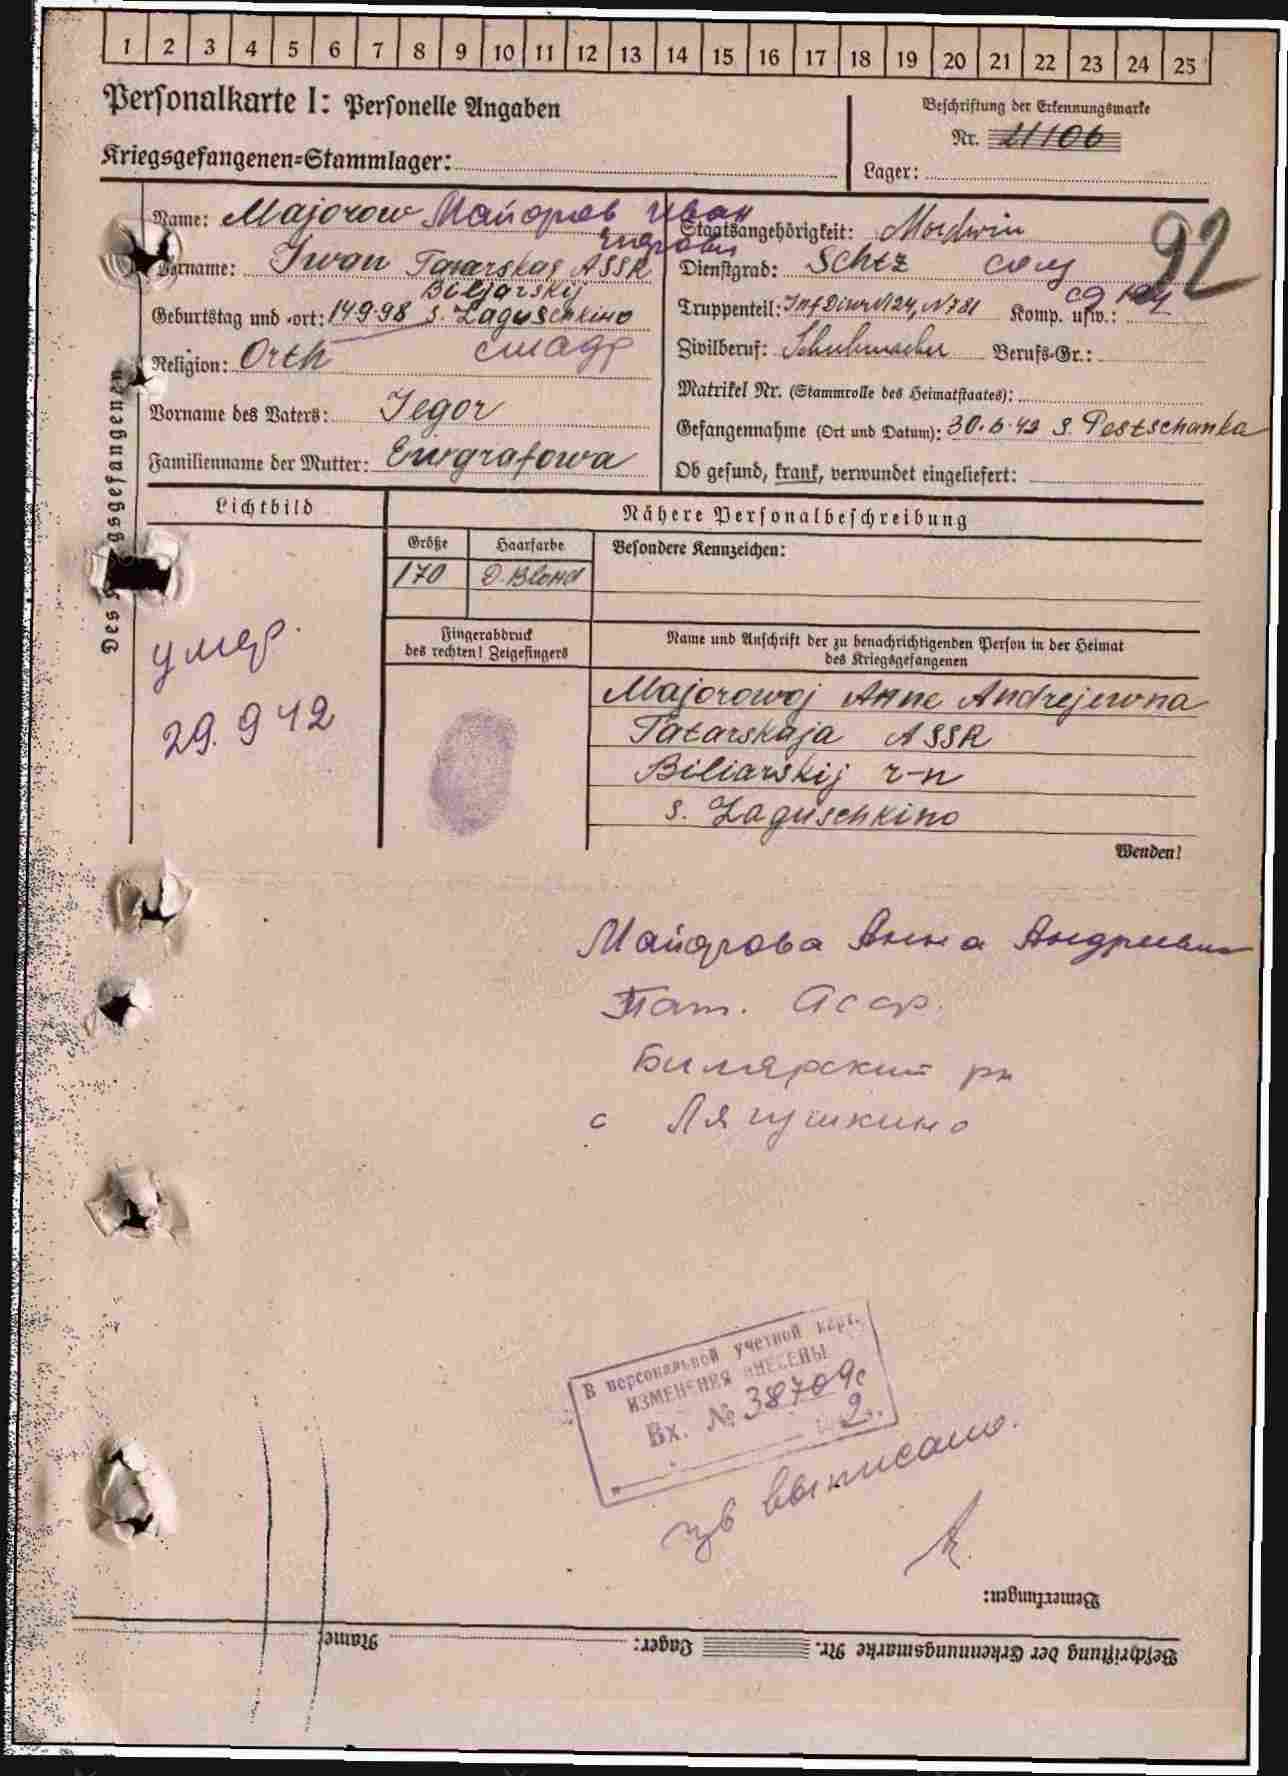 1 2 3 4 5 6 7 8 9 10 11 12 13 14 15 16 17 18 19 20 21 22 23 24 25
Personalkarte I: Personelle Angaben
Beschriftung der Erkennungsmarke
Nr. 21106
Kriegsgefangenen=Stammlager:
Lager:
Name: Majorow Майоров Иван
Staatsangehörigkeit: Mordwin
92
Vorname: Iwan Tatarskaj ASSR
Dienstgrad: Schtz
Biljarskij
Geburtstag und -ort: 14.9.98 s. Laguschkino
Truppenteil: Inf Div N 124, N 781 Komp. usw.:
Religion: Orth
Zivilberuf: Schuhmacher Berufs-Gr.:
Matrikel Nr. (Stammrolle des Heimatstaates):
Vorname des Vaters: Jegor
Gefangennahme (Ort und Datum): 30.6.42 s. Pestschanka
Familienname der Mutter: Ewgrafowa
Ob gesund, krank, verwundet eingeliefert:
Des Kriegsgefangenen
Lichtbild
Nähere Personalbeschreibung
Größe
Haarfarbe
Besondere Kennzeichen:
170
D. Blond
умер.
29.9 42
Fingerabdruck
des rechten! Zeigefingers
Name und Anschrift der zu benachrichtigenden Person in der Heimat
des Kriegsgefangenen
Majorowoj Anne Andrejewna
Tatarskaja ASSR
Biliarskij r-n
s. Laguschkino
Wenden!
Майорова Анна Андреевна
Тат. Асср.
Билярский рн
с Лягушкино
В персональной учетной карт.
ИЗМЕНЕНИЯ ВНЕСЕНЫ
Вх. № 38709с
выписано.
Bemerkungen:
Beschriftung der Erkennungsmarke Nr. Lager: Name: